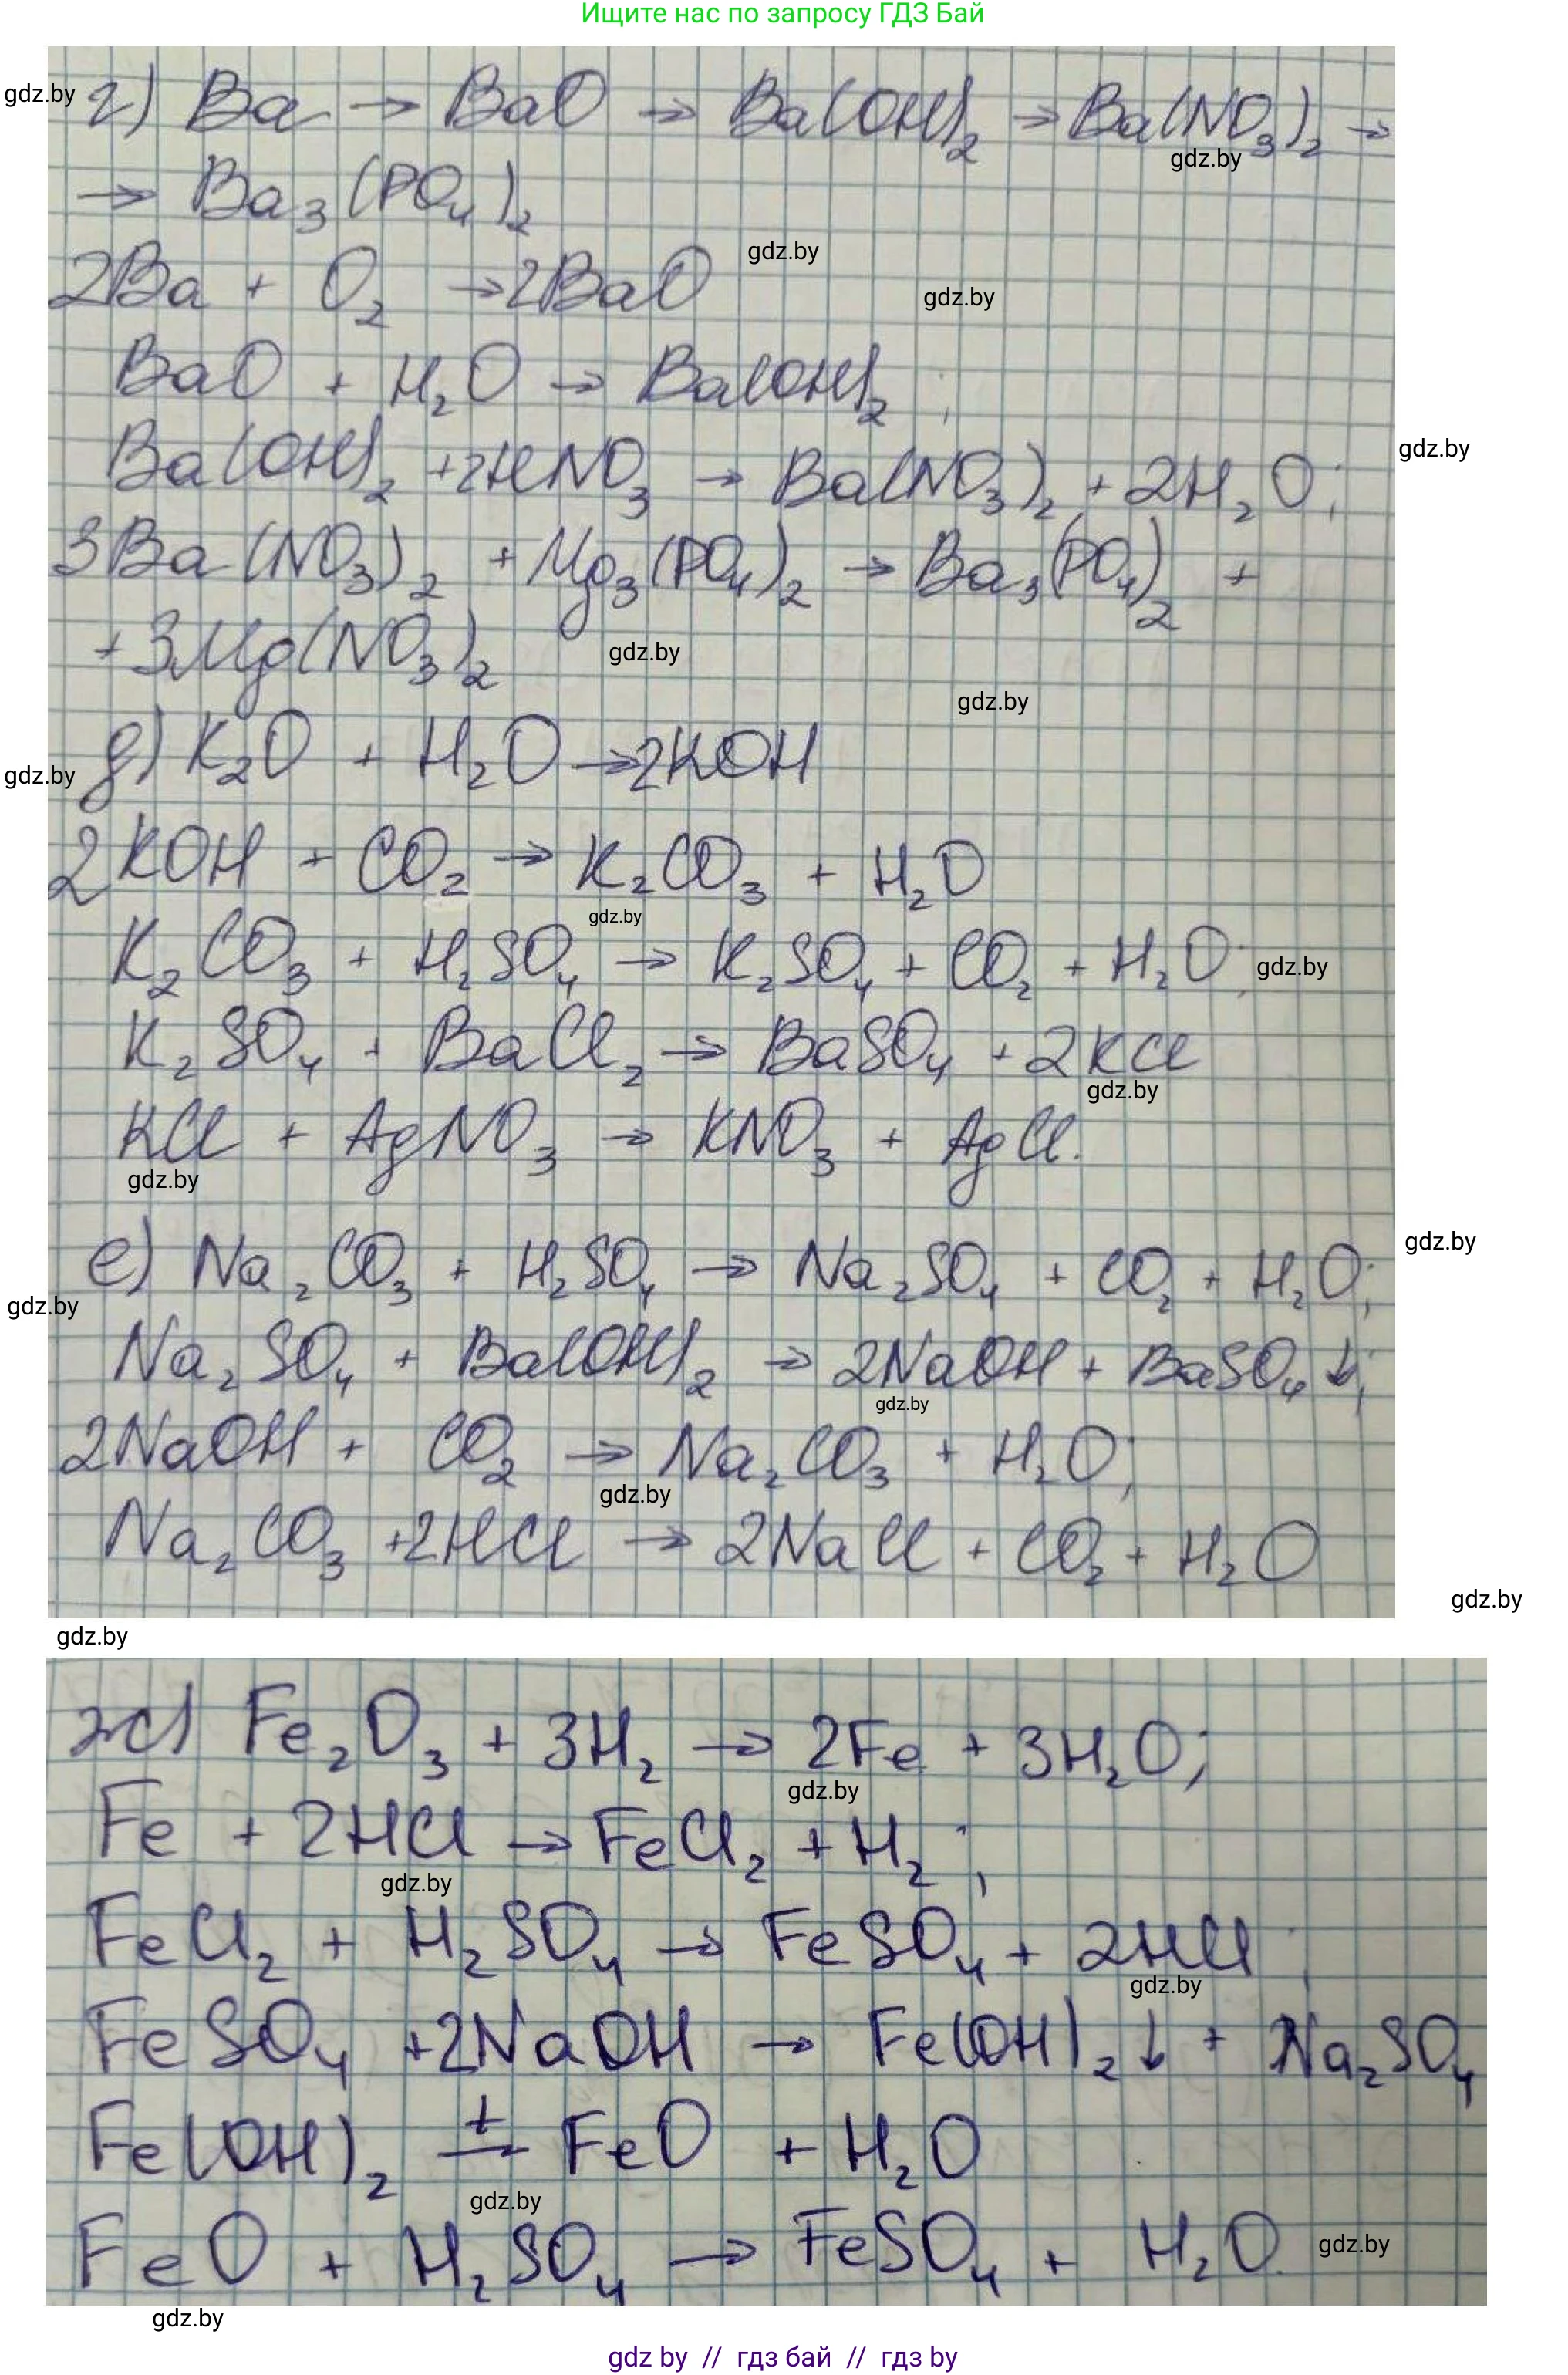 Ищите нас по запросу ГДЗ Бай
gdz.by
г) Ba → BaO → Ba(OH)₂ → Ba(NO₃)₂ →
gdz.by
→ Ba₃(PO₄)₂
gdz.by
2Ba + O₂ → 2BaO
gdz.by
BaO + H₂O → Ba(OH)₂ ;
gdz.by
Ba(OH)₂ + 2HNO₃ → Ba(NO₃)₂ + 2H₂O;
3Ba(NO₃)₂ + Mg₃(PO₄)₂ → Ba₃(PO₄)₂ +
+ 3Mg(NO₃)₂
gdz.by
gdz.by
д) K₂O + H₂O → 2KOH
gdz.by
2KOH + CO₂ → K₂CO₃ + H₂O
gdz.by
K₂CO₃ + H₂SO₄ → K₂SO₄ + CO₂ + H₂O;
gdz.by
K₂SO₄ + BaCl₂ → BaSO₄ + 2KCl
gdz.by
KCl + AgNO₃ → KNO₃ + AgCl.
gdz.by
gdz.by
е) Na₂CO₃ + H₂SO₄ → Na₂SO₄ + CO₂ + H₂O;
gdz.by
Na₂SO₄ + Ba(OH)₂ → 2NaOH + BaSO₄↓;
gdz.by
2NaOH + CO₂ → Na₂CO₃ + H₂O;
gdz.by
Na₂CO₃ + 2HCl → 2NaCl + CO₂ + H₂O
gdz.by
gdz.by
ж) Fe₂O₃ + 3H₂ → 2Fe + 3H₂O;
gdz.by
Fe + 2HCl → FeCl₂ + H₂ ;
gdz.by
FeCl₂ + H₂SO₄ → FeSO₄ + 2HCl ;
gdz.by
FeSO₄ + 2NaOH → Fe(OH)₂↓ + Na₂SO₄
Fe(OH)₂ =t= FeO + H₂O
gdz.by
FeO + H₂SO₄ → FeSO₄ + H₂O.
gdz.by
gdz.by
gdz by // гдз бай // гдз by